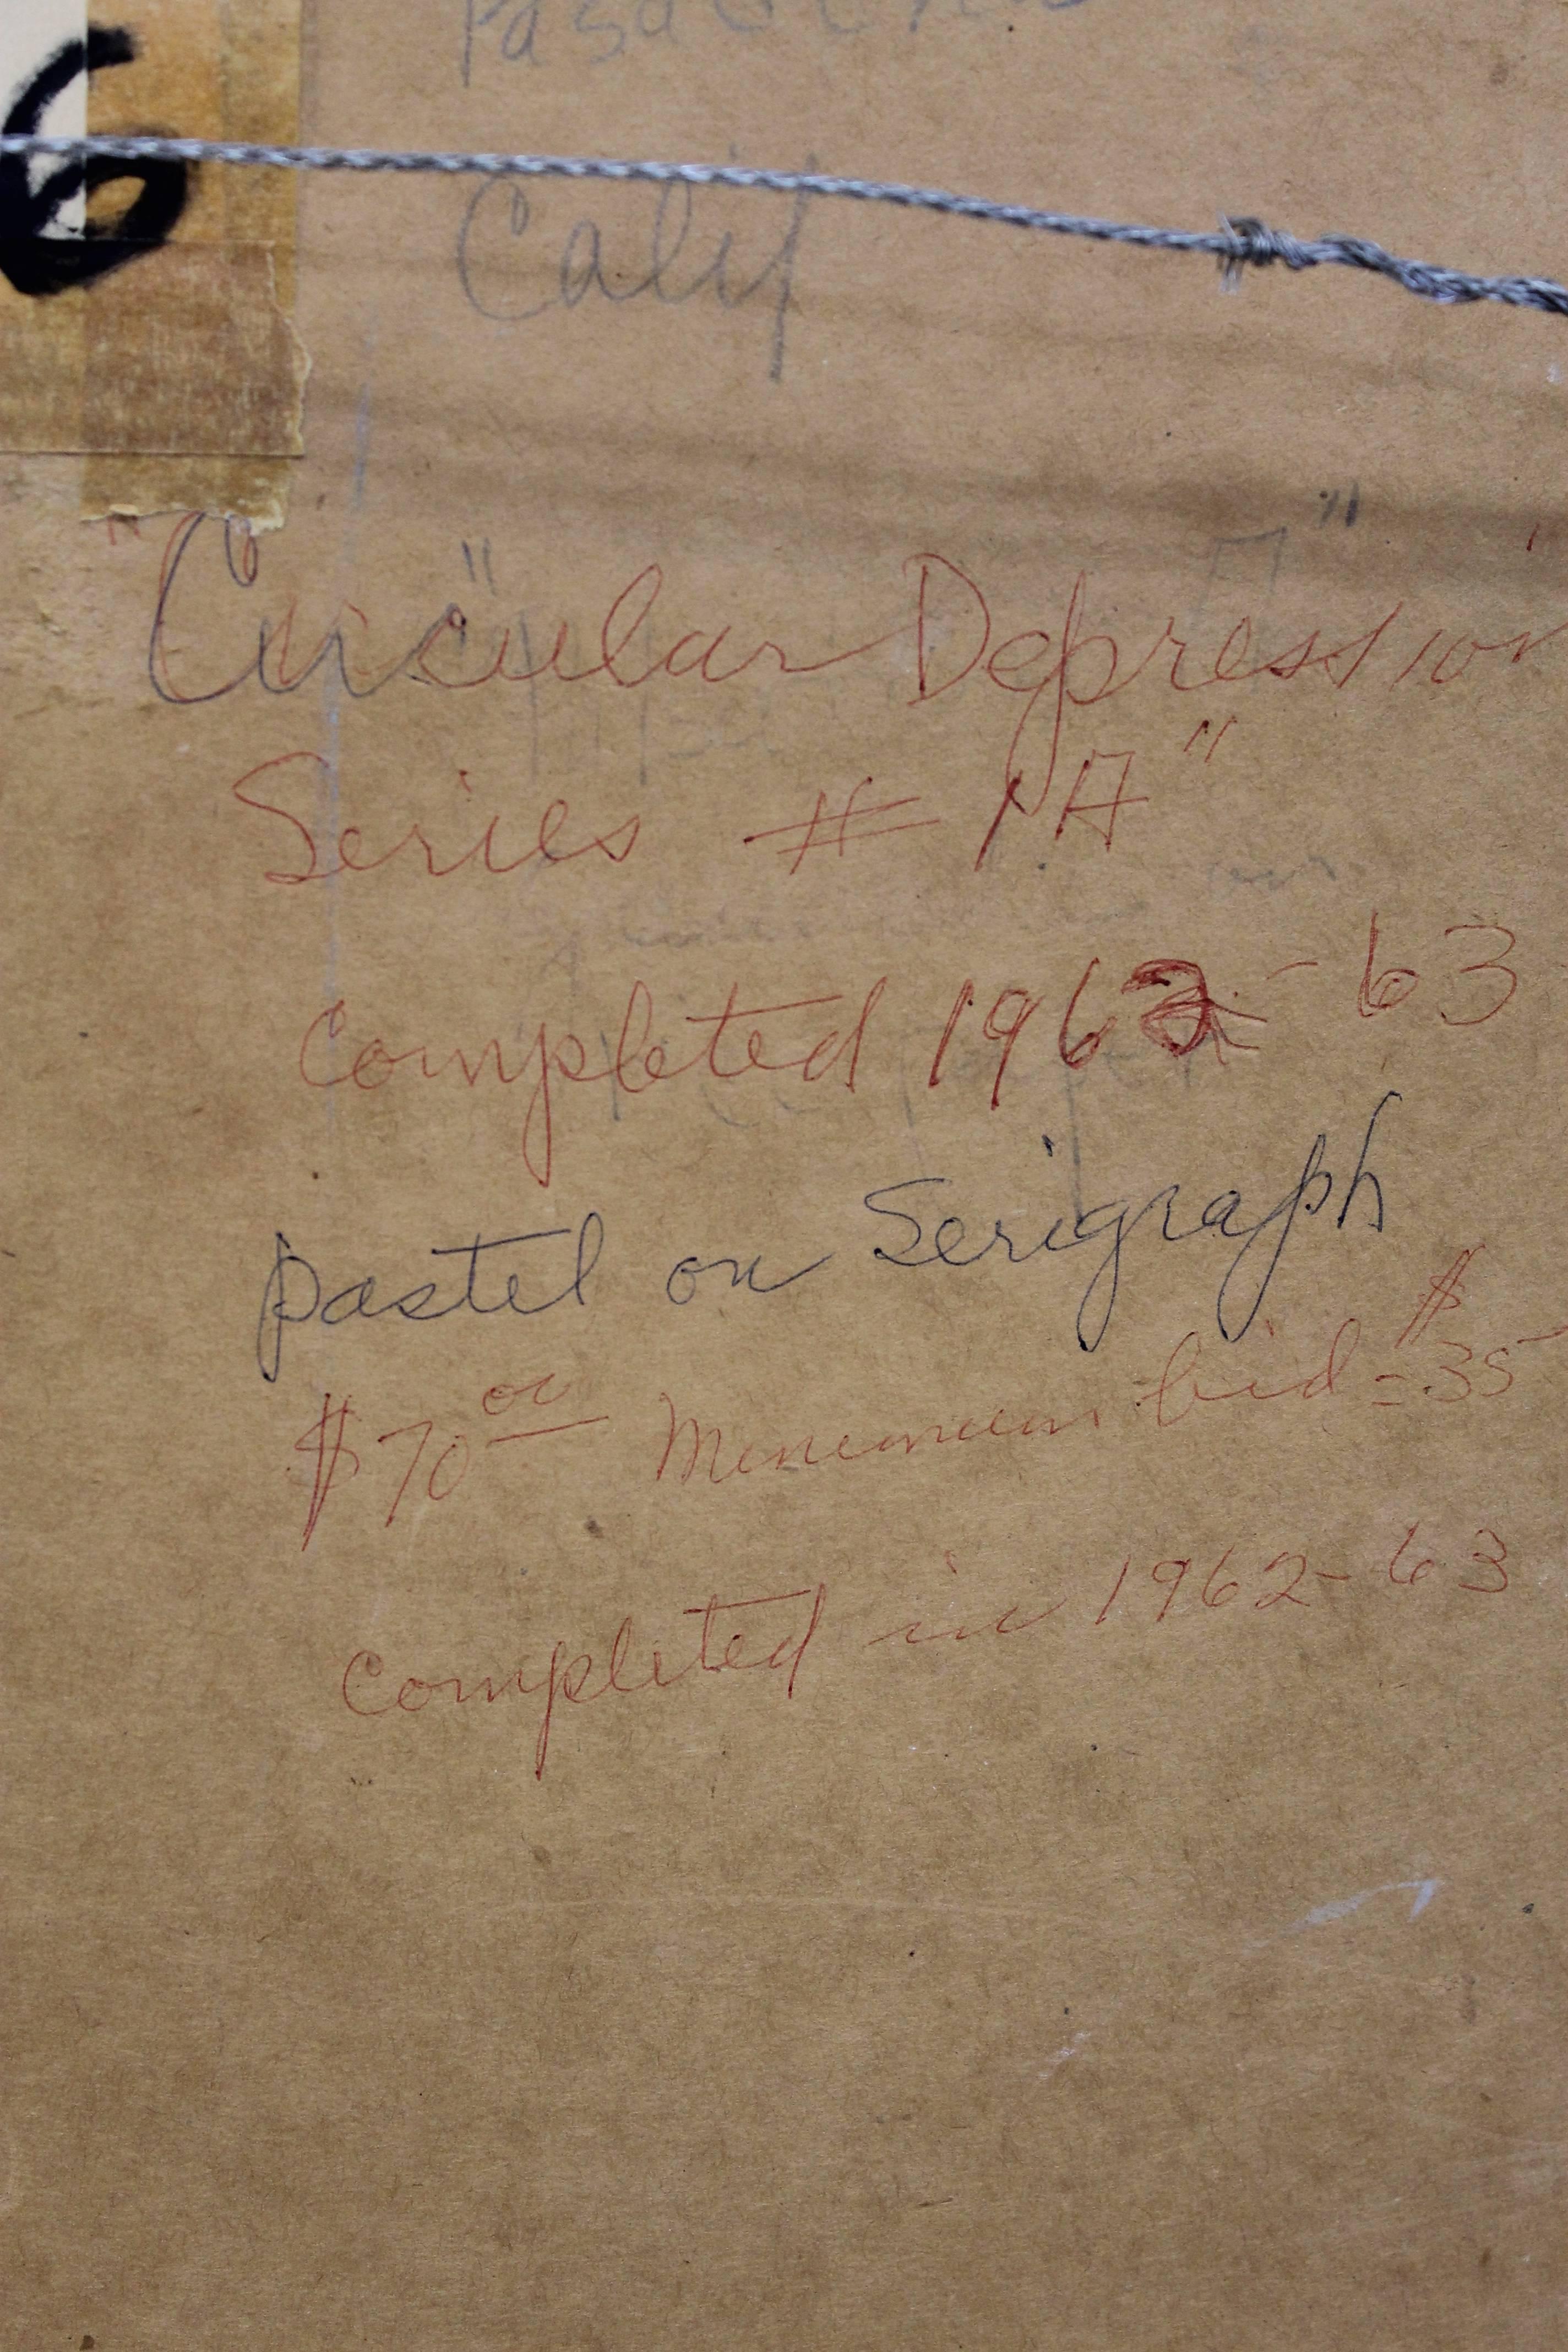 6
Pasadena
Calif
"Circular Depression
Series # 1A"
Completed 1962-63
pastel on Serigraph
$70 00 Minimum bid = $35
Completed in 1962-63